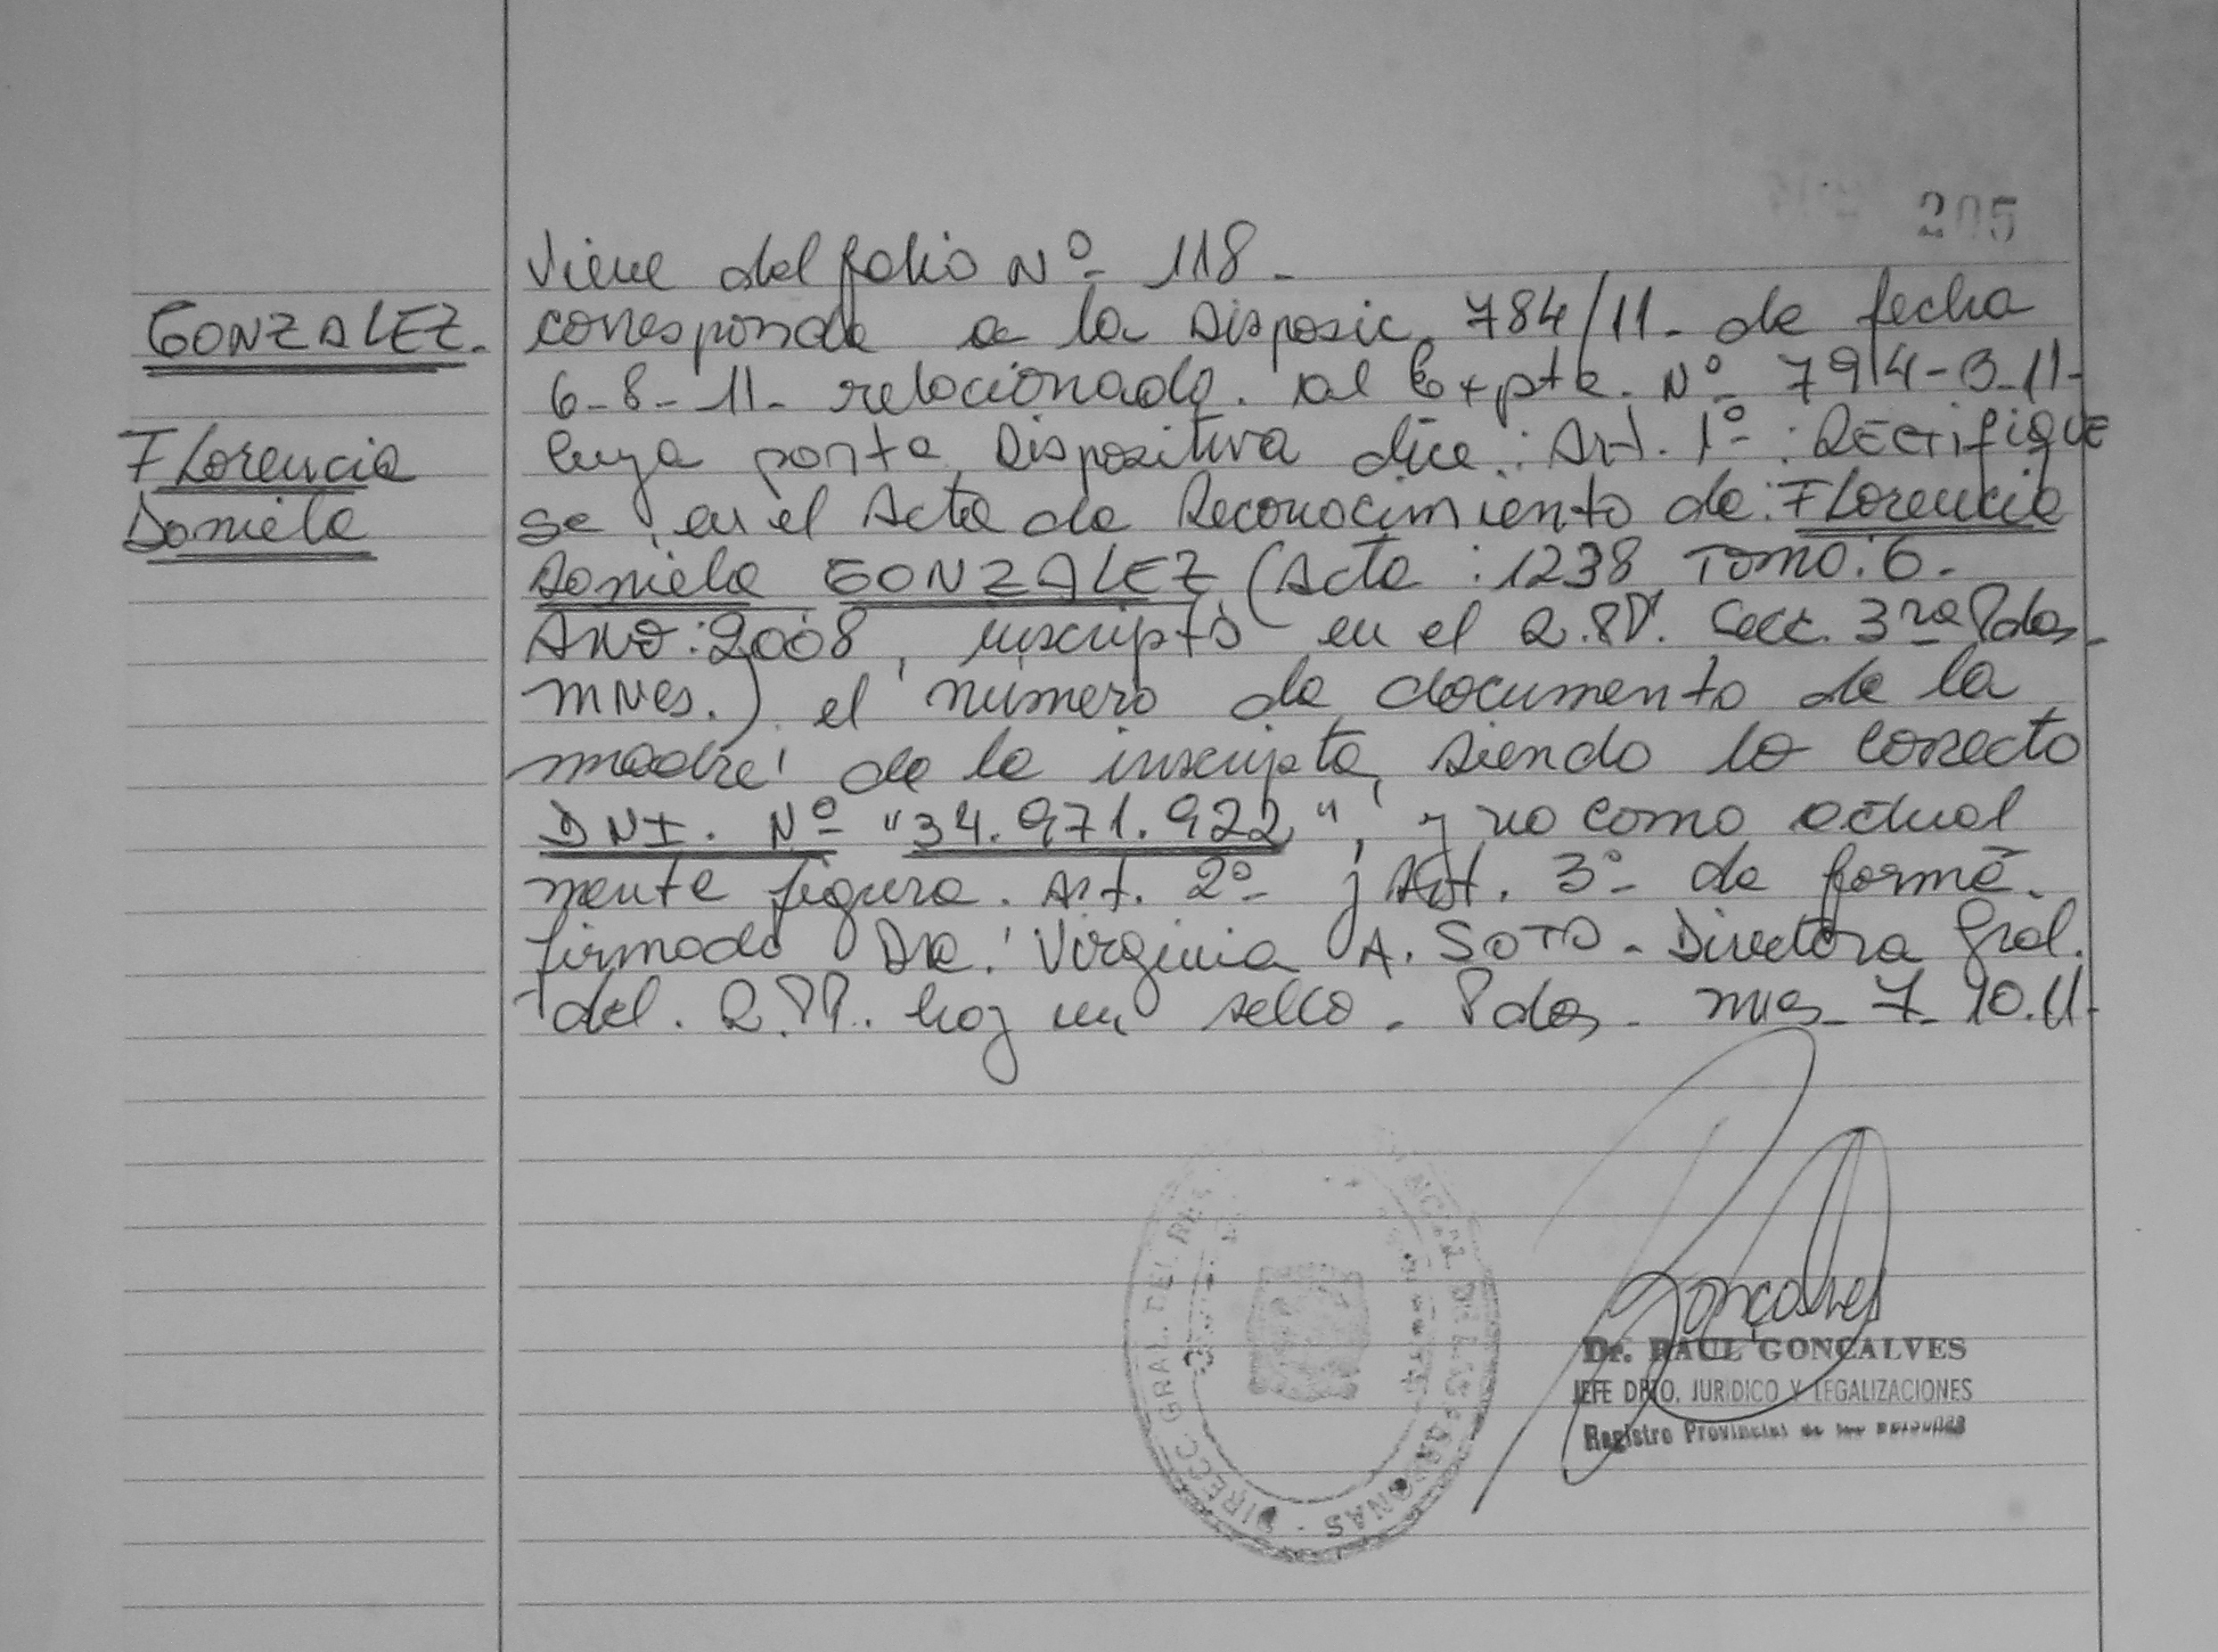 205
Viene del folio Nº 118.-
GONZALEZ.
corresponde a la Disposic. 784/11- de fecha
6-8-11- relacionado. al Expte. Nº 7914-B-11-
Florencia
Cuya parte Dispositiva dice: Art. 1º: RECTifiQUE
Daniela
se en el Acta de Reconocimiento de: Florencia
Daniela GONZALEZ (Acta: 1238 Tomo: 6.
AÑO: 2008, inscripto en el R.PP. Secc. 3ra Pdas.
mnes.) el número de documento de la
madre de la inscripta, siendo lo correcto
DNI. Nº "34.971.922", y no como actual
mente figura. Art. 2º- y Art. 3º- de forma.
firmado Dra. Virginia A. SOTO - Directora Gral.
del. R.PP. hay un sello. Pdas. mnes. 7-10.11-
DIRECC. GRAL. DEL
DE LAS PERSONAS
Dr. RAUL GONCALVES
JEFE DPTO. JURIDICO Y LEGALIZACIONES
Registro Provincial de las Personas